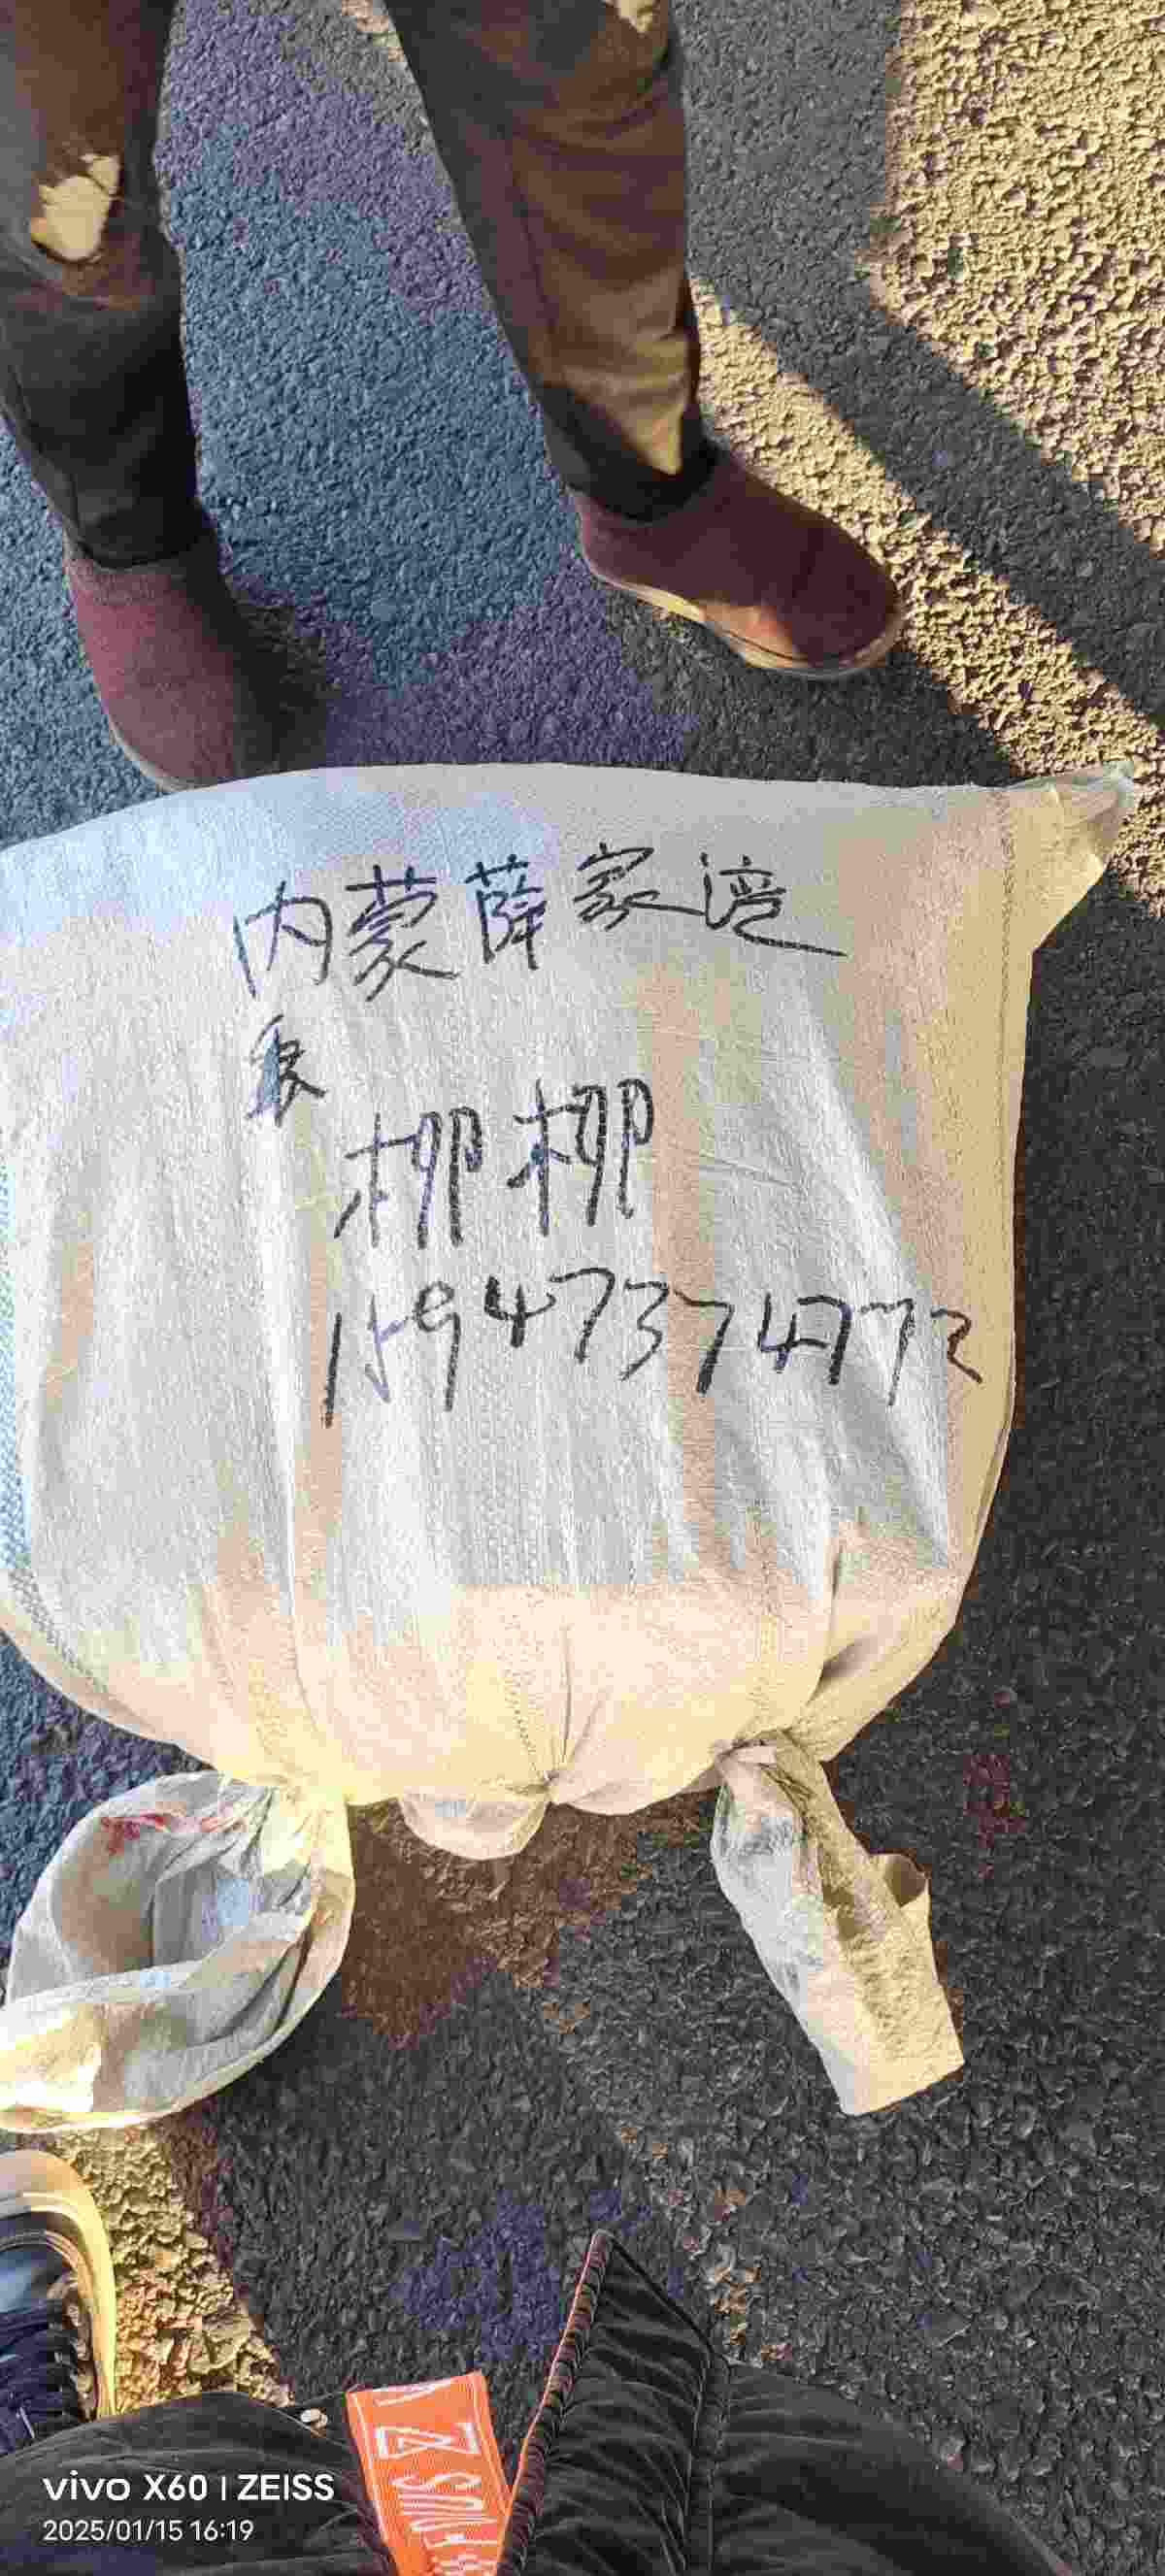 内蒙薛家湾
柳柳
15947374772
vivo X60 | ZEISS
2025/01/15 16:19